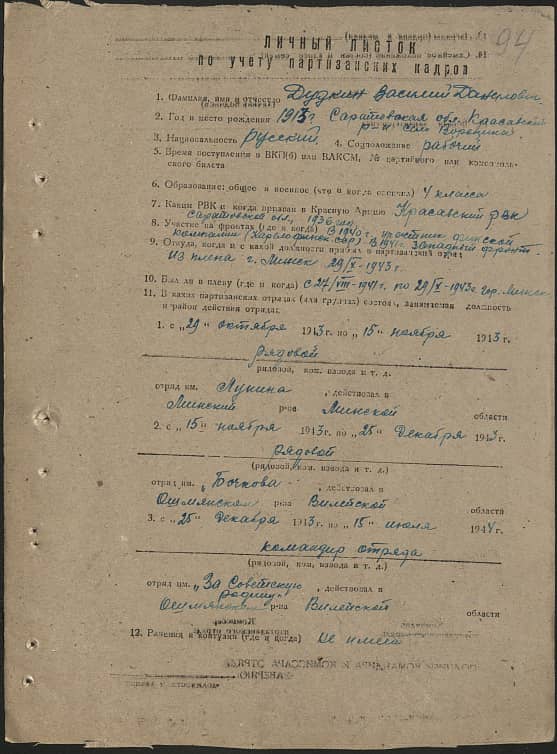 94
ЛИЧНЫЙ ЛИСТОК
по учету партизанских кадров
1. Фамилия, имя и отчество Дудкин Василий Данилович
2. Год и место рождения 1913г Саратовская обл. Красавский
р-н село Воровцина
3. Национальность русский 4. Соцположение рабочий
5. Время поступления в ВКП(б) или ВЛКСМ, № партийного или комсомоль-
ского билета
6. Образование: общее и военное (что и когда окончил) 4 класса
7. Каким РВК и когда призван в Красную Армию Красавский РВК
Саратовской обл., 1936 году
8. Участие на фронтах (где и когда) В 1940 г. участник финской
компании В 1941г. Западный фронт.
9. Откуда, когда и с какой должности прибыл в партизанский отряд
Из плена г. Минск 29/X-1943 г.
10. Был ли в плену (где и когда) С 27/VIII-1941г. по 29/X-1943г гор. Минск
11. В каких партизанских отрядах (или группах) состоял, занимаемая должность
и район действия отряда:
1. с „29" октября 1943 г. по „15" ноября 1943 г.
рядовой
рядовой, ком. взвода и т. д.
отряд им. Лунина , действовал в
Минский р-не Минской области
2. с „15" ноября 1943 г. по „25" Декабря 1943 г.
рядовой
(рядовой, ком. взвода и т. д.)
отряд им. „Бочкова , действовал в
Ошмянском р-не Вилейской области
3. с „25" Декабря 1943 г. по „15" июля 1944 г.
командир отряда
(рядовой, ком. взвода и т. д.)
отряд им. „За Советскую , действовал в
родину"
Ошмянском р-на Вилейской области
12. Ранения и контузии (где и когда) Не имел